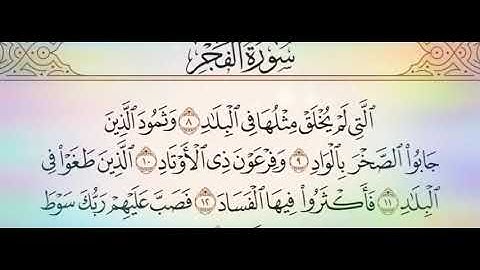 سُورَةُ الفَجْرِ
الَّتِي لَمْ يُخْلَقْ مِثْلُهَا فِي الْبِلَادِ ٨ وَثَمُودَ الَّذِينَ
جَابُوا الصَّخْرَ بِالْوَادِ ٩ وَفِرْعَوْنَ ذِي الْأَوْتَادِ ١٠ الَّذِينَ طَغَوْا فِي
الْبِلَادِ ١١ فَأَكْثَرُوا فِيهَا الْفَسَادَ ١٢ فَصَبَّ عَلَيْهِمْ رَبُّكَ سَوْطَ